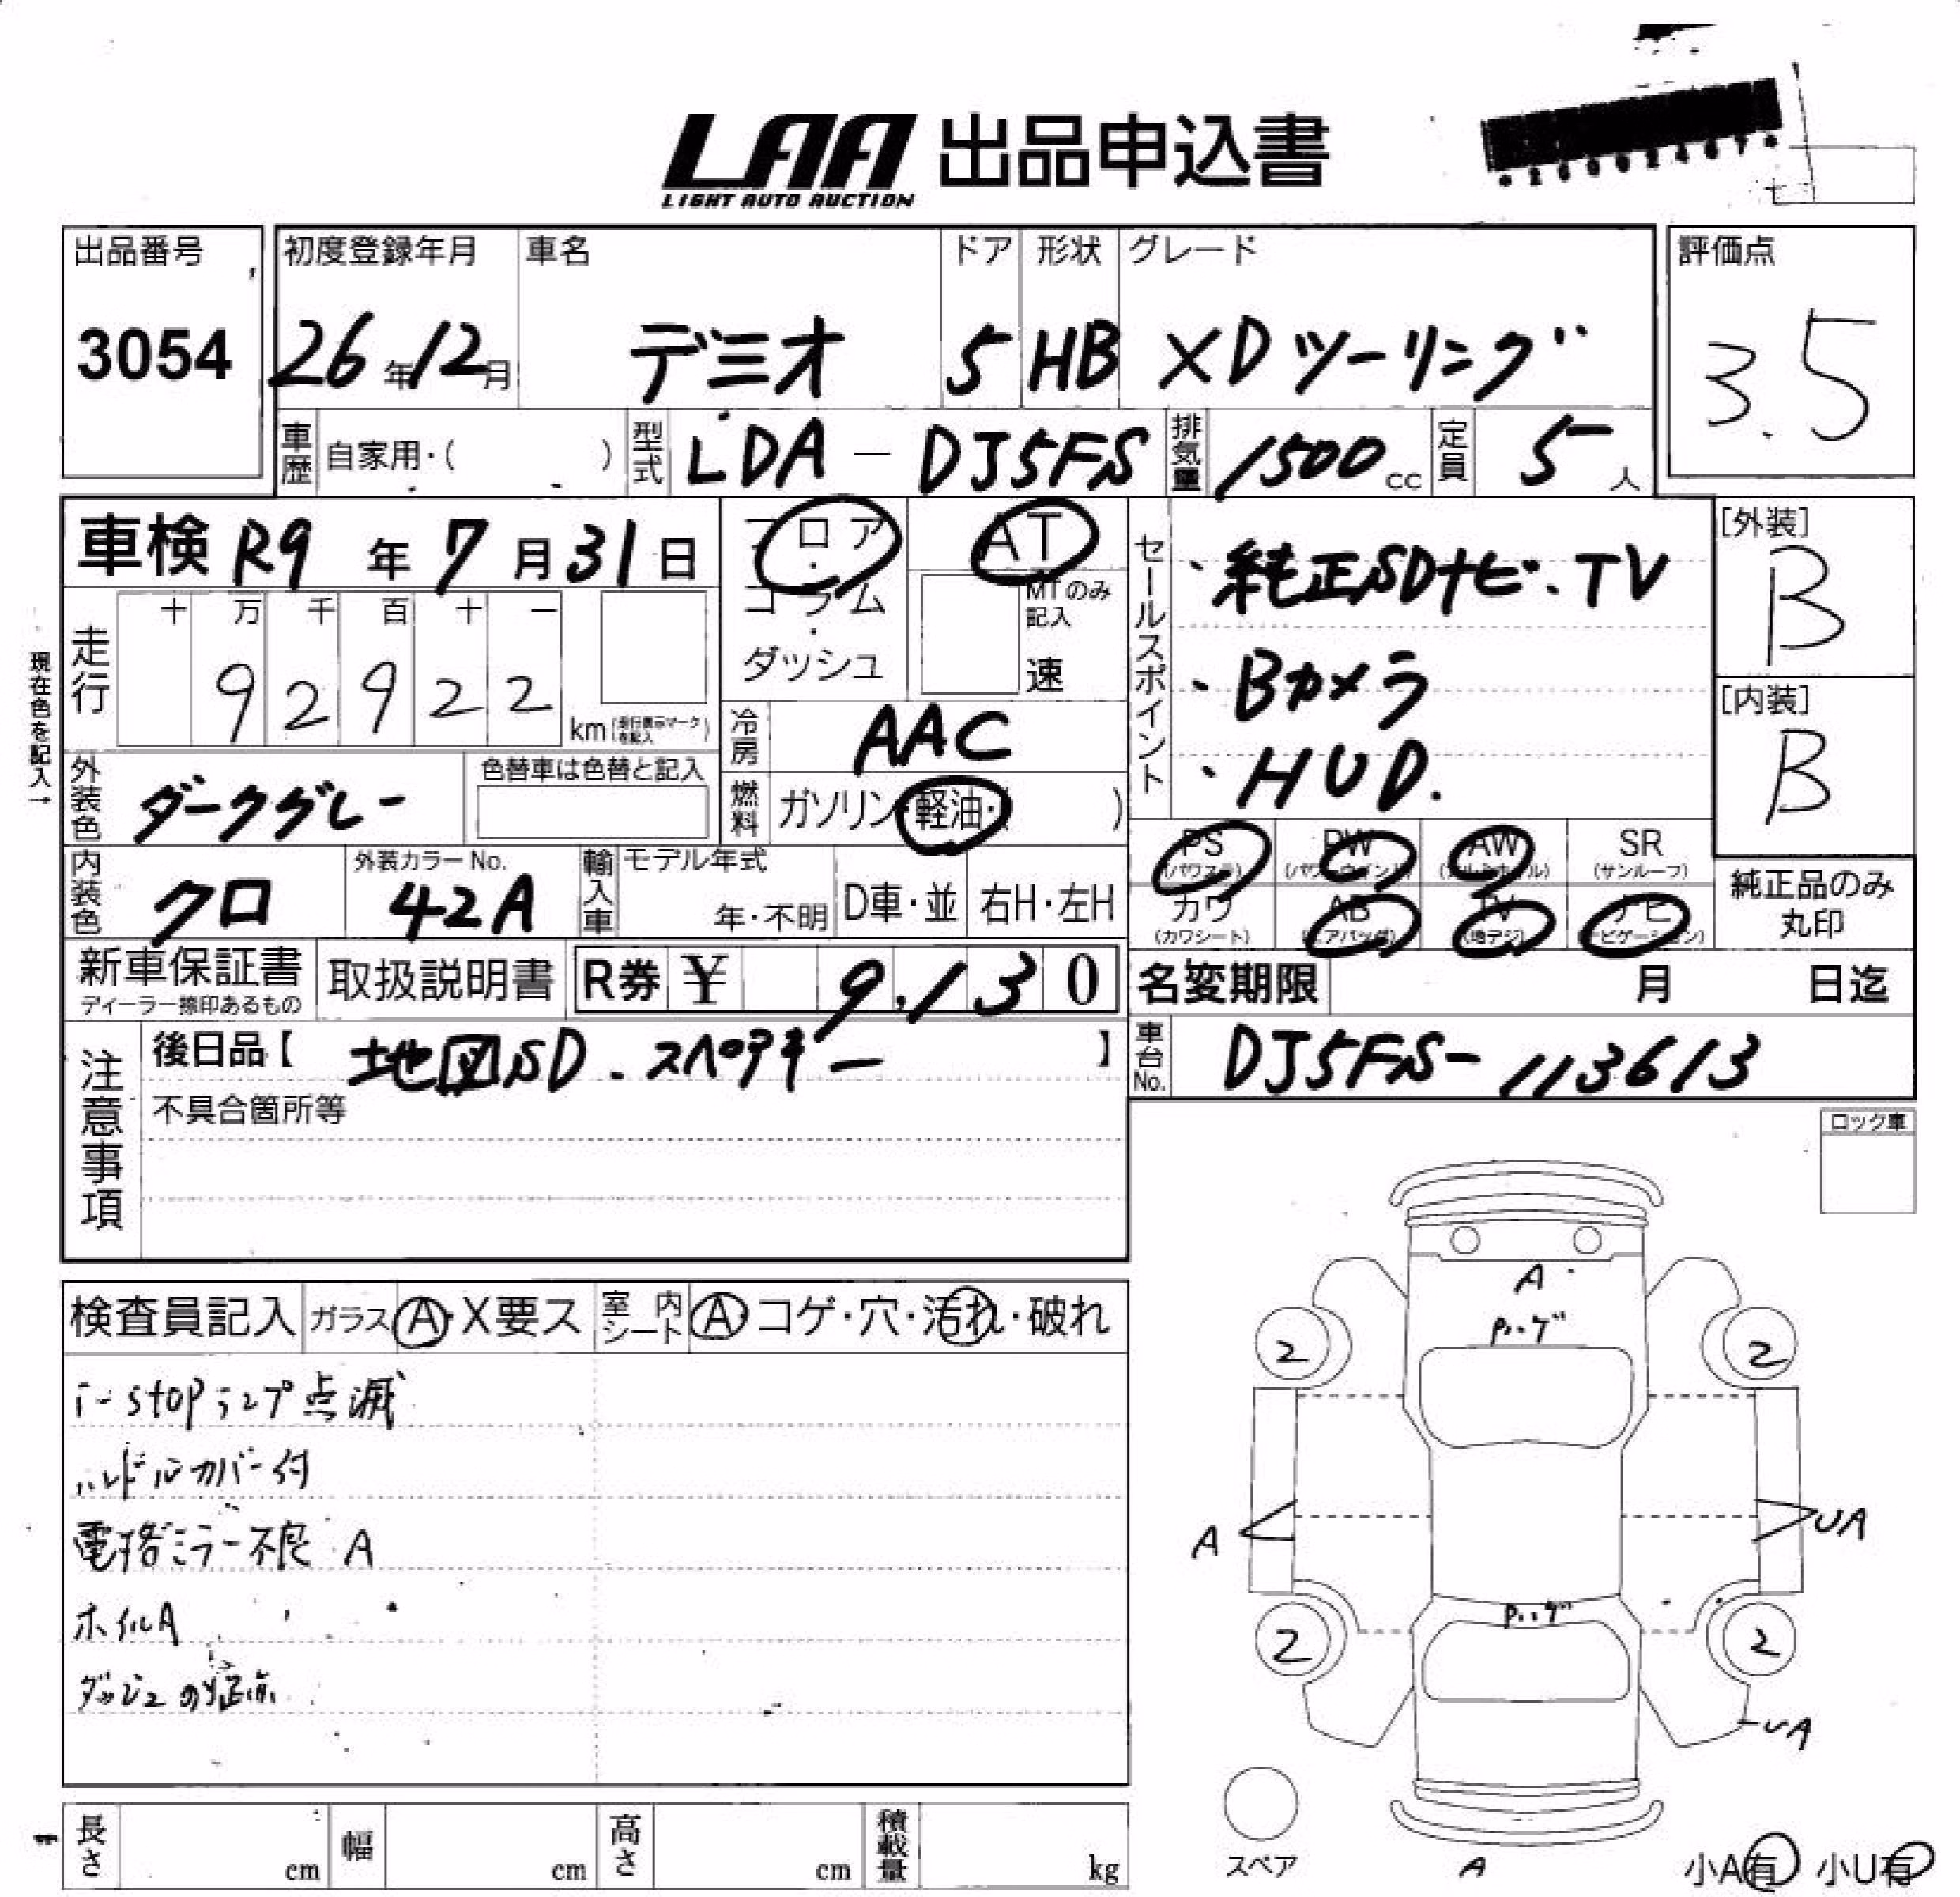 LAA 出品申込書
LIGHT AUTO AUCTION
出品番号
3054
初度登録年月
26年12月
車名
デミオ
ドア
5
形状
HB
グレード
XDツーリング
評価点
3.5
車歴 自家用・( )
型式 LDA-DJ5FS
排気量 1500cc
定員 5人
車検 R9年7月31日
フロア・コラム・ダッシュ
AT
MTのみ記入
速
セールスポイント
・純正SDナビ.TV
・Bカメラ
・HUD.
[外装]
B
[内装]
B
現在色を記入→
走行
十万千百十一
92922
km(走行表示マークを記入)
冷房 AAC
燃料 ガソリン・軽油・( )
外装色 ダークグレー
色替車は色替と記入
内装色 クロ
外装カラーNo.
42A
輸入車 モデル年式
年・不明
D車・並
右H・左H
PS
(パワステ)
PW
(パワーウィンド)
AW
(アルミホイル)
SR
(サンルーフ)
カワ
(カワシート)
AB
(エアバッグ)
TV
(地デジ)
ナビ
(ナビゲーション)
純正品のみ
丸印
新車保証書
ディーラー捺印あるもの
取扱説明書
R券 ¥ 9,130
名変期限 月 日迄
注意事項
後日品【 地図SD.スペアキー 】
不具合箇所等
車台No. DJ5FS-113613
ロック車
検査員記入
ガラス A・X要ス
室内シート A・コゲ・穴・汚れ・破れ
i-stopランプ点滅
ハンドルカバー付
電格ミラー不良 A
ホイルA
A
2
2
A
UA
2
2
UA
スペア
A
小A有 小U有
長さ cm
幅 cm
高さ cm
積載量 kg